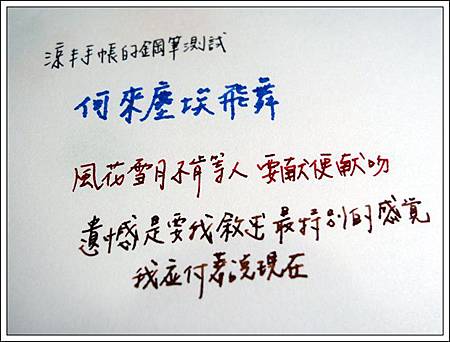 涼丰手帳的鋼筆測試
何來塵埃飛舞
風花雪月不肯等人 要献便献吻
遺憾是要我敘述最特別的感覚
我应 現在